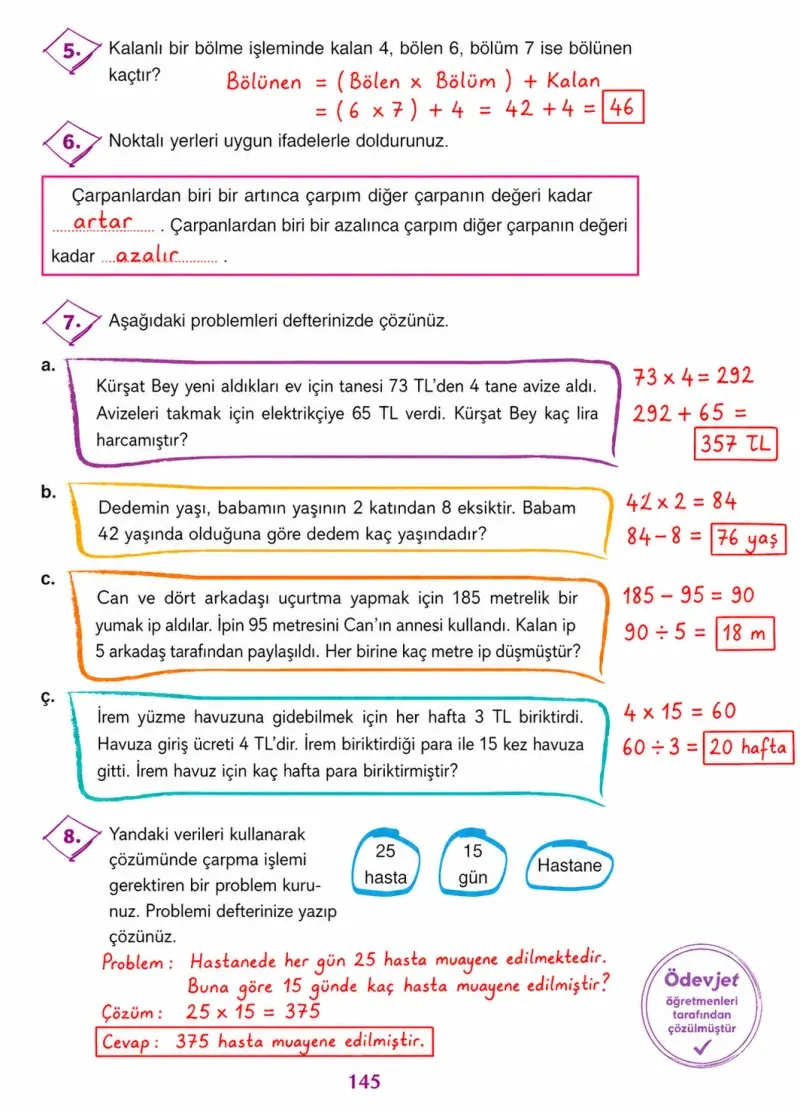 5. Kalanlı bir bölme işleminde kalan 4, bölen 6, bölüm 7 ise bölünen
kaçtır?
Bölünen = ( Bölen x Bölüm ) + Kalan
= ( 6 x 7 ) + 4 = 42 + 4 = 46
6. Noktalı yerleri uygun ifadelerle doldurunuz.
Çarpanlardan biri bir artınca çarpım diğer çarpanın değeri kadar
artar . Çarpanlardan biri bir azalınca çarpım diğer çarpanın değeri
kadar ....azalır............ .
7. Aşağıdaki problemleri defterinizde çözünüz.
a.
Kürşat Bey yeni aldıkları ev için tanesi 73 TL'den 4 tane avize aldı.
Avizeleri takmak için elektrikçiye 65 TL verdi. Kürşat Bey kaç lira
harcamıştır?
73 x 4 = 292
292 + 65 =
357 TL
b.
Dedemin yaşı, babamın yaşının 2 katından 8 eksiktir. Babam
42 yaşında olduğuna göre dedem kaç yaşındadır?
42 x 2 = 84
84 – 8 = 76 yaş
c.
Can ve dört arkadaşı uçurtma yapmak için 185 metrelik bir
yumak ip aldılar. İpin 95 metresini Can'ın annesi kullandı. Kalan ip
5 arkadaş tarafından paylaşıldı. Her birine kaç metre ip düşmüştür?
185 – 95 = 90
90 ÷ 5 = 18 m
ç.
İrem yüzme havuzuna gidebilmek için her hafta 3 TL biriktirdi.
Havuza giriş ücreti 4 TL'dir. İrem biriktirdiği para ile 15 kez havuza
gitti. İrem havuz için kaç hafta para biriktirmiştir?
4 x 15 = 60
60 ÷ 3 = 20 hafta
8. Yandaki verileri kullanarak
çözümünde çarpma işlemi
gerektiren bir problem kuru-
nuz. Problemi defterinize yazıp
çözünüz.
25
hasta
15
gün
Hastane
Problem : Hastanede her gün 25 hasta muayene edilmektedir.
Buna göre 15 günde kaç hasta muayene edilmiştir?
Çözüm : 25 x 15 = 375
Cevap : 375 hasta muayene edilmiştir.
Ödevjet
öğretmenleri
tarafından
çözülmüştür
145